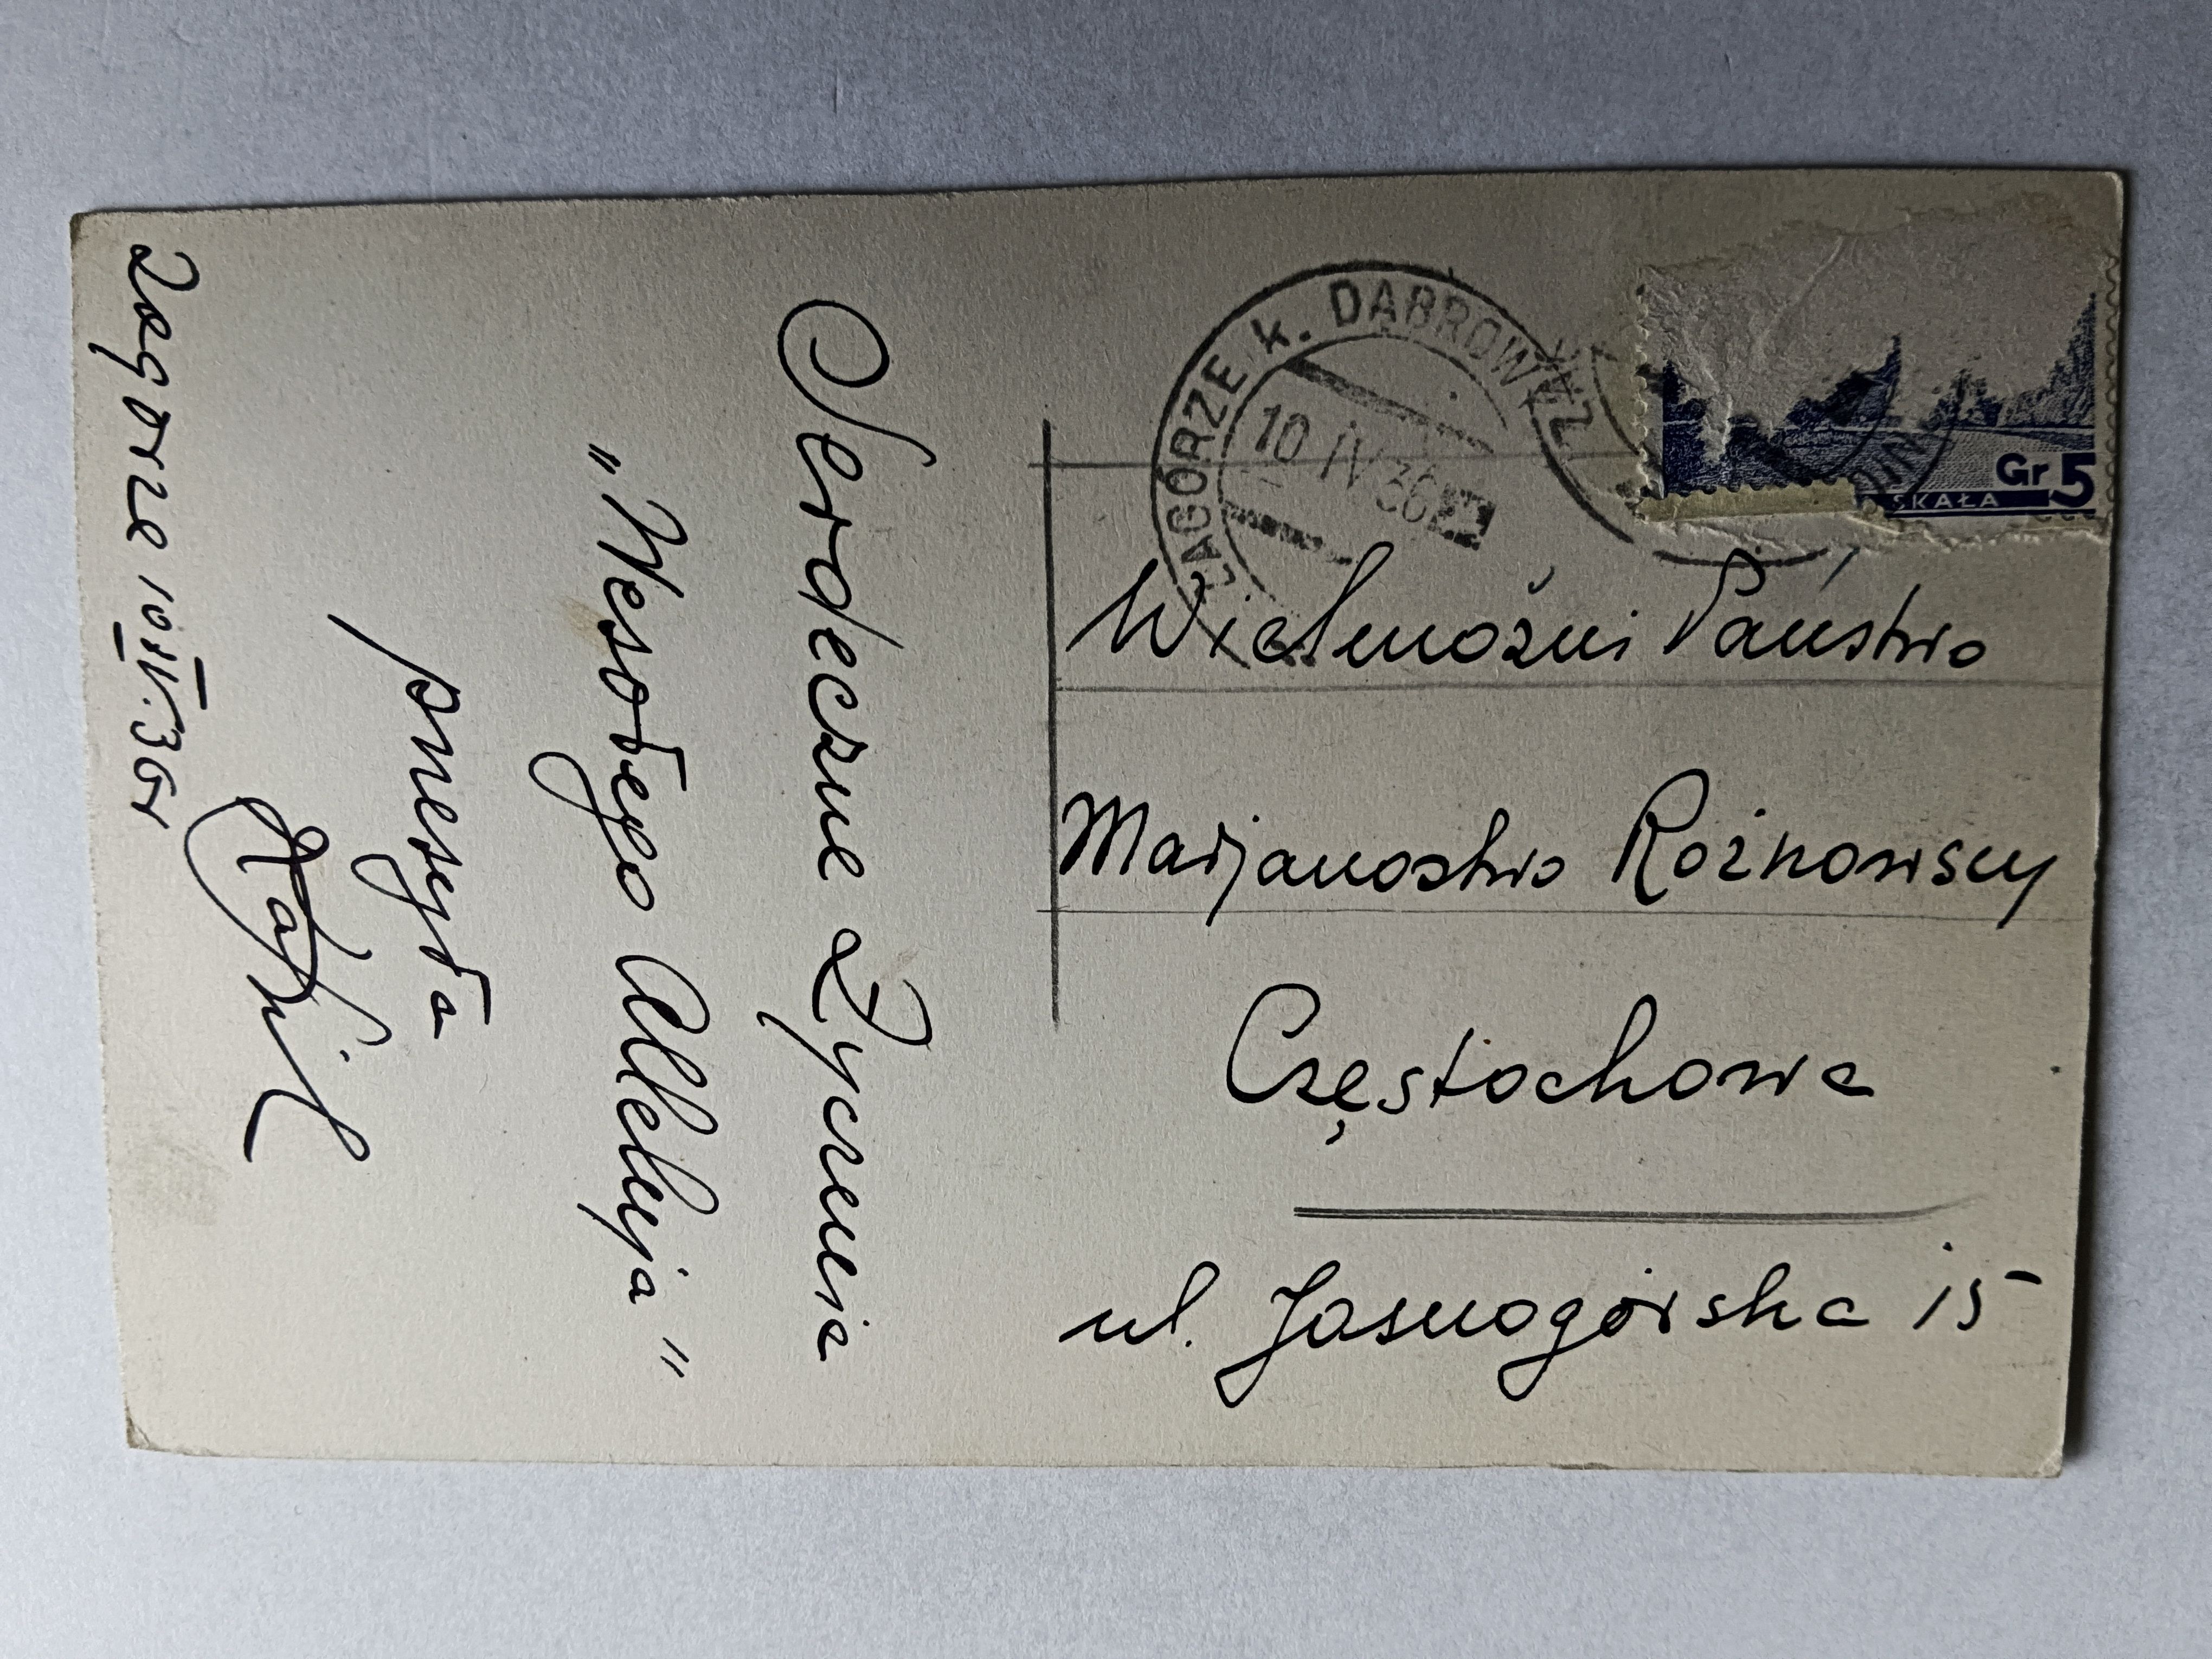 Serdeczne Życzenia
„Wesołego Alleluja”
przesyła
Zagórze 10.IV.36r
ZAGÓRZE k. DĄBROWY
10 IV 36
Gr 5
SKAŁA
Wielmożni Państwo
Marjanostwo Rożnowscy
Częstochowa
ul. Jasnogórska 15